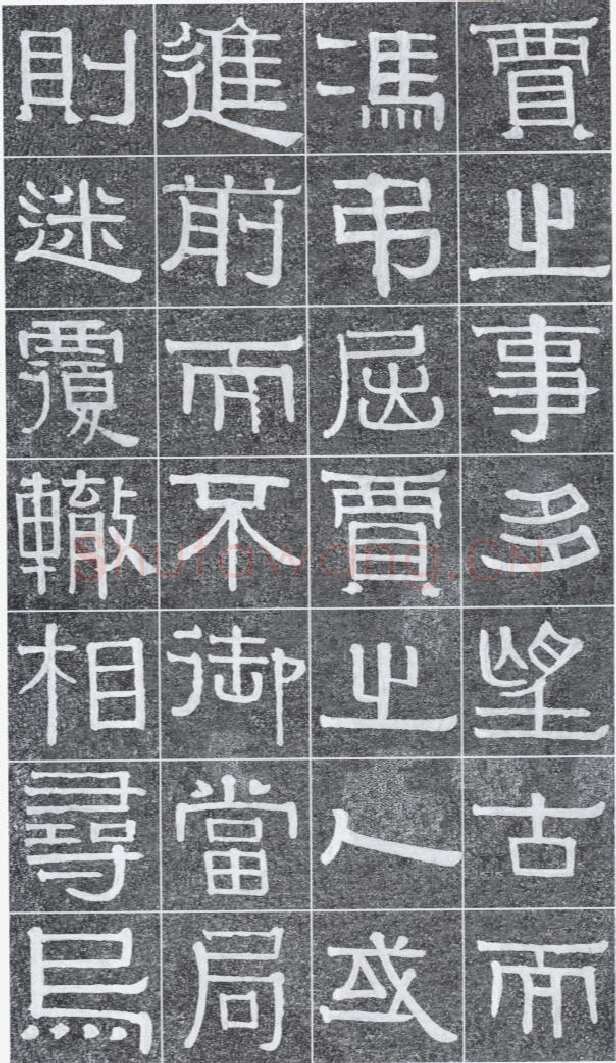 賈之事多望古而
馮弔屈賈之人或
進前而不御當局
則迷覆轍相尋烏
Shufawang.CN